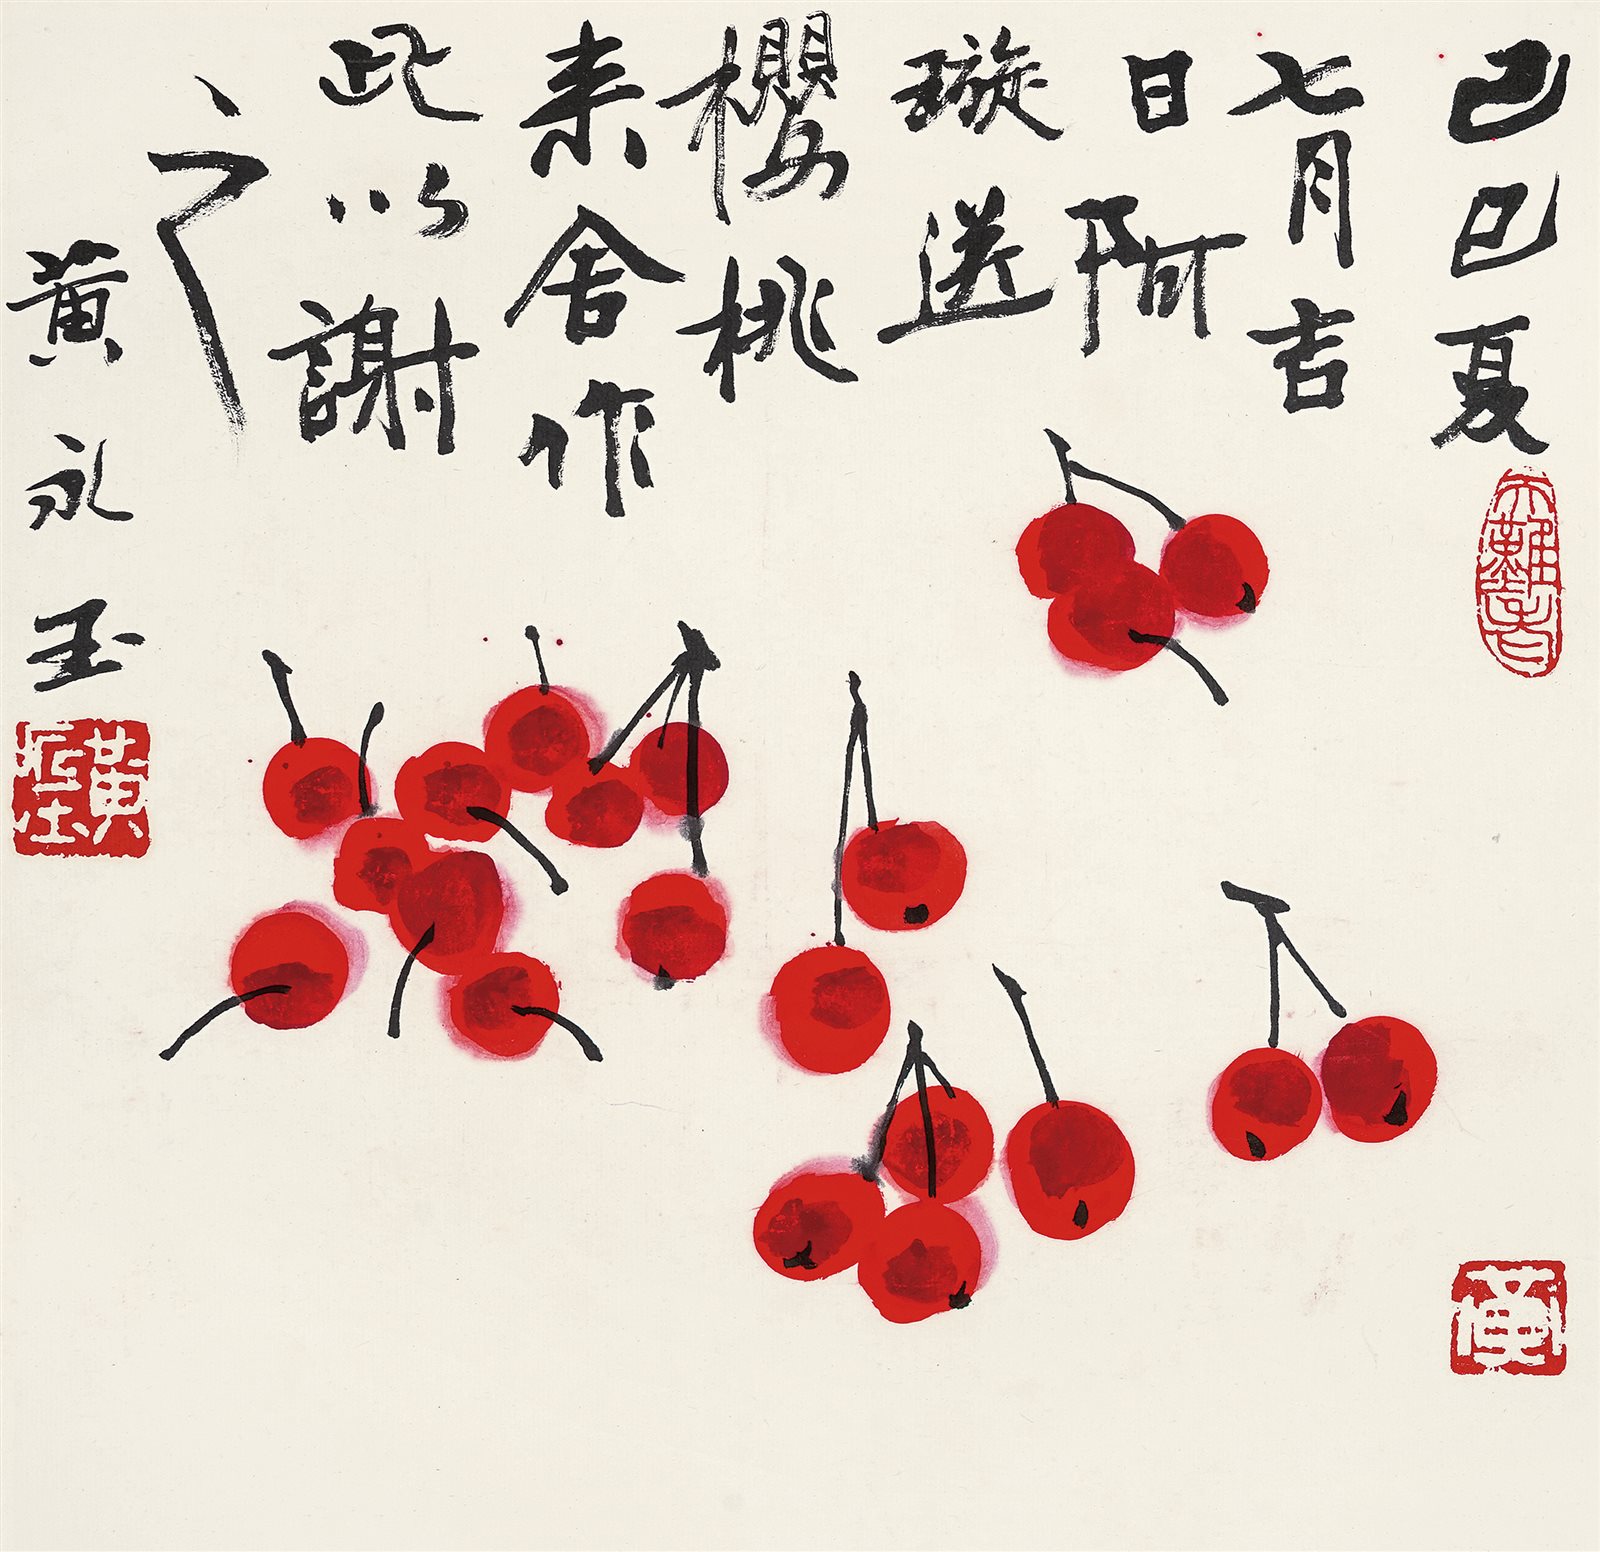 己巳夏
七月吉
日阿
璇送
櫻桃
来舍作
此以謝
之
黄永玉
黄